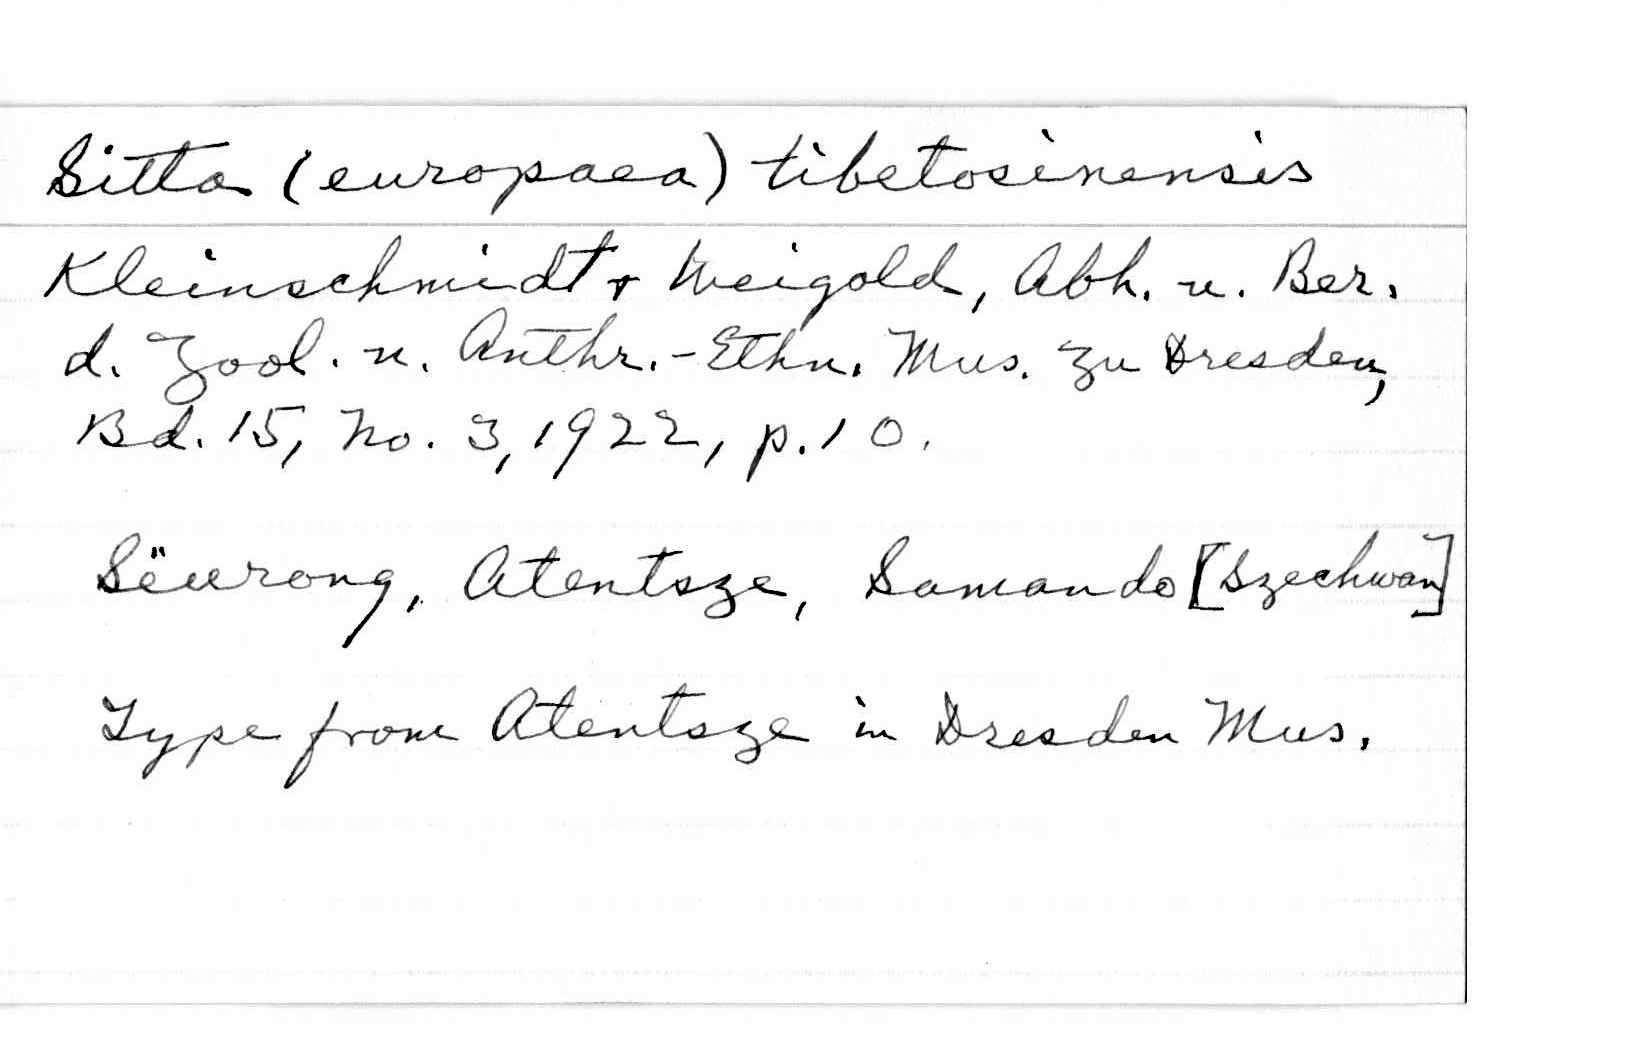 Sitta (europaea) tibetosinensis
Kleinschmidt & Weigold, Abh. u. Ber.
d. Zool. u. Anthr.-Ethn. Mus. zu Dresden,
Bd. 15, No. 3, 1922, p. 10.
Sëurong, Atentsze, Samando [Szechwan]
Type from Atentsze in Dresden Mus.